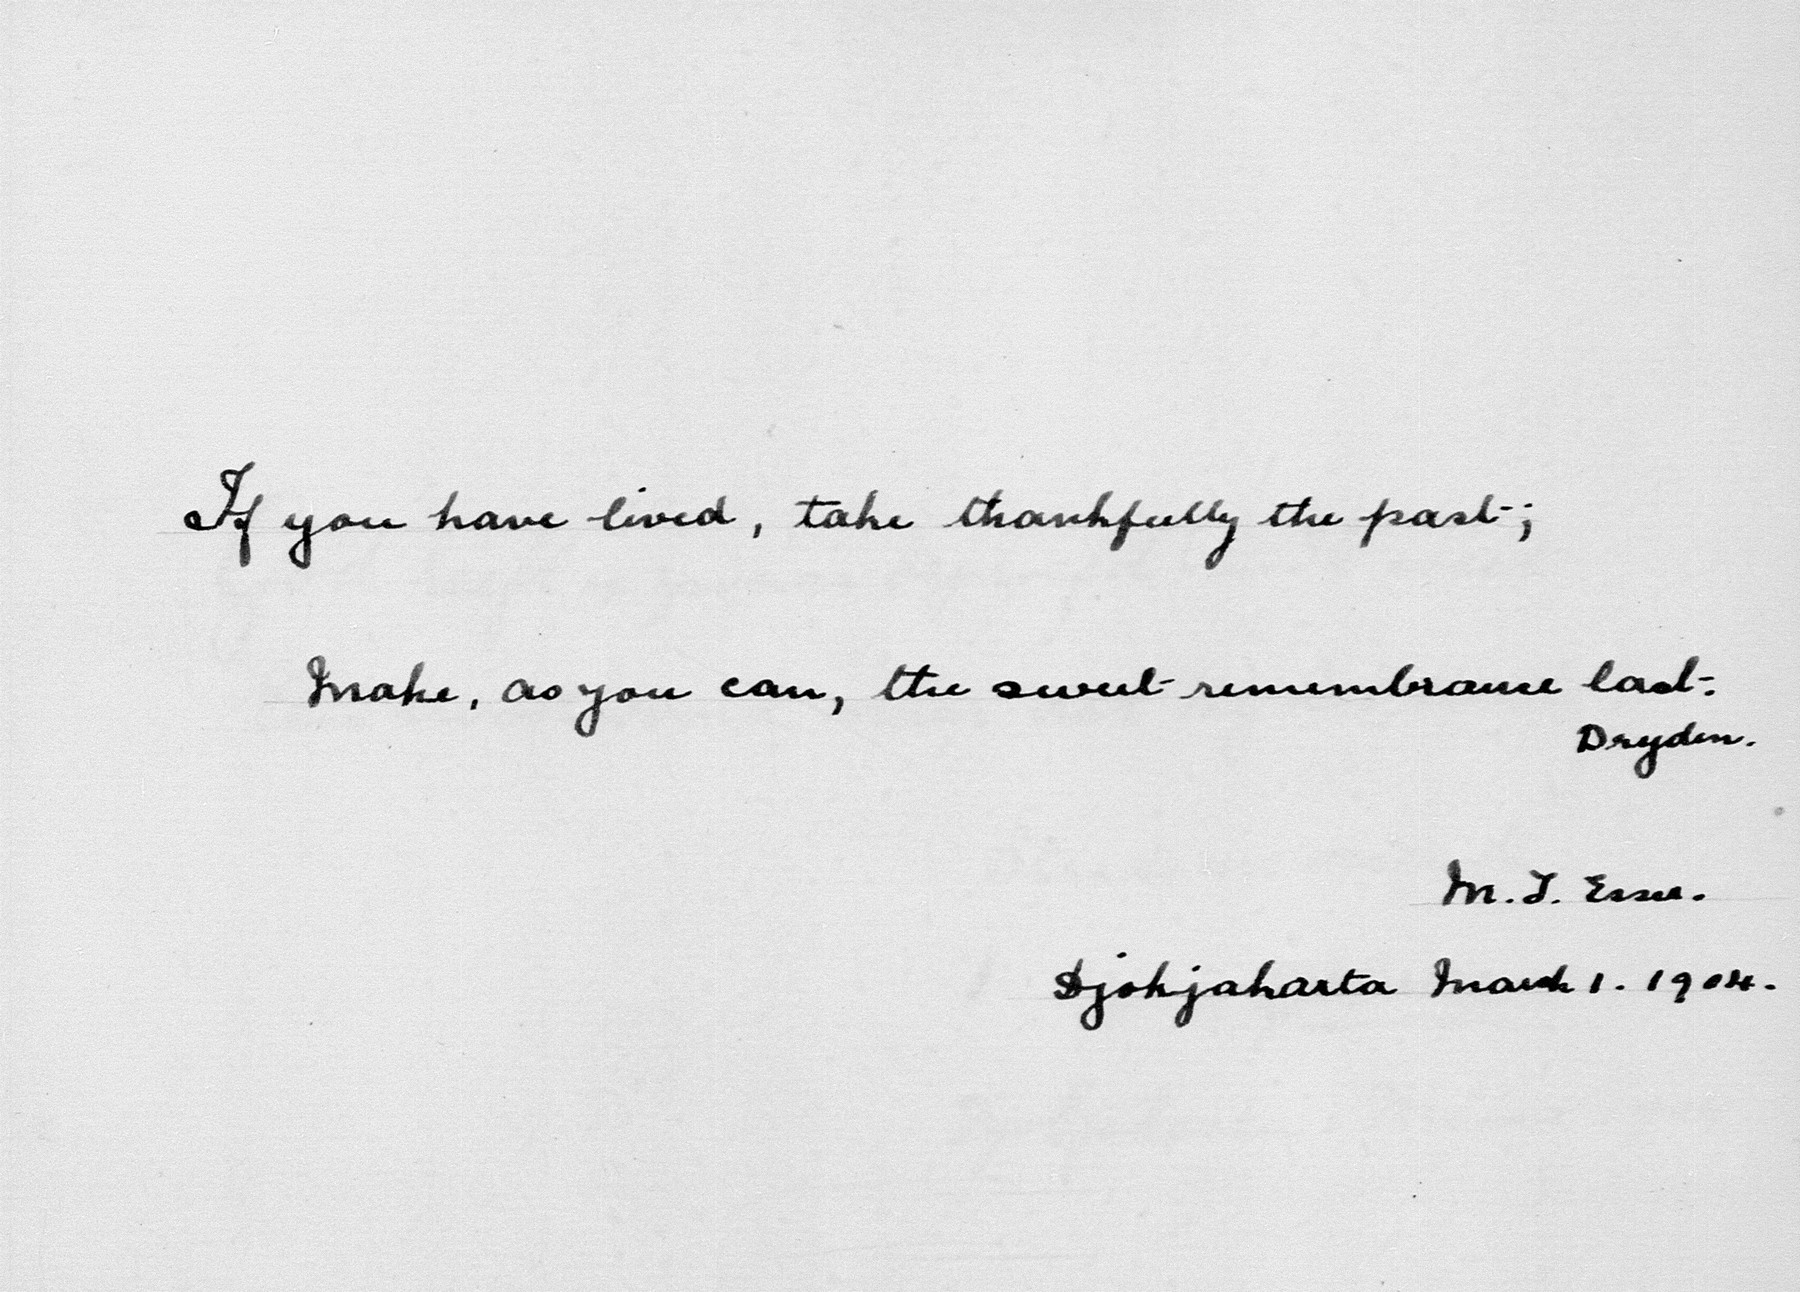 If you have lived, take thankfully the past;
Make, as you can, the sweet remembrance last.
Dryden.
M. J. Esser.
Djokjakarta March 1. 1904.